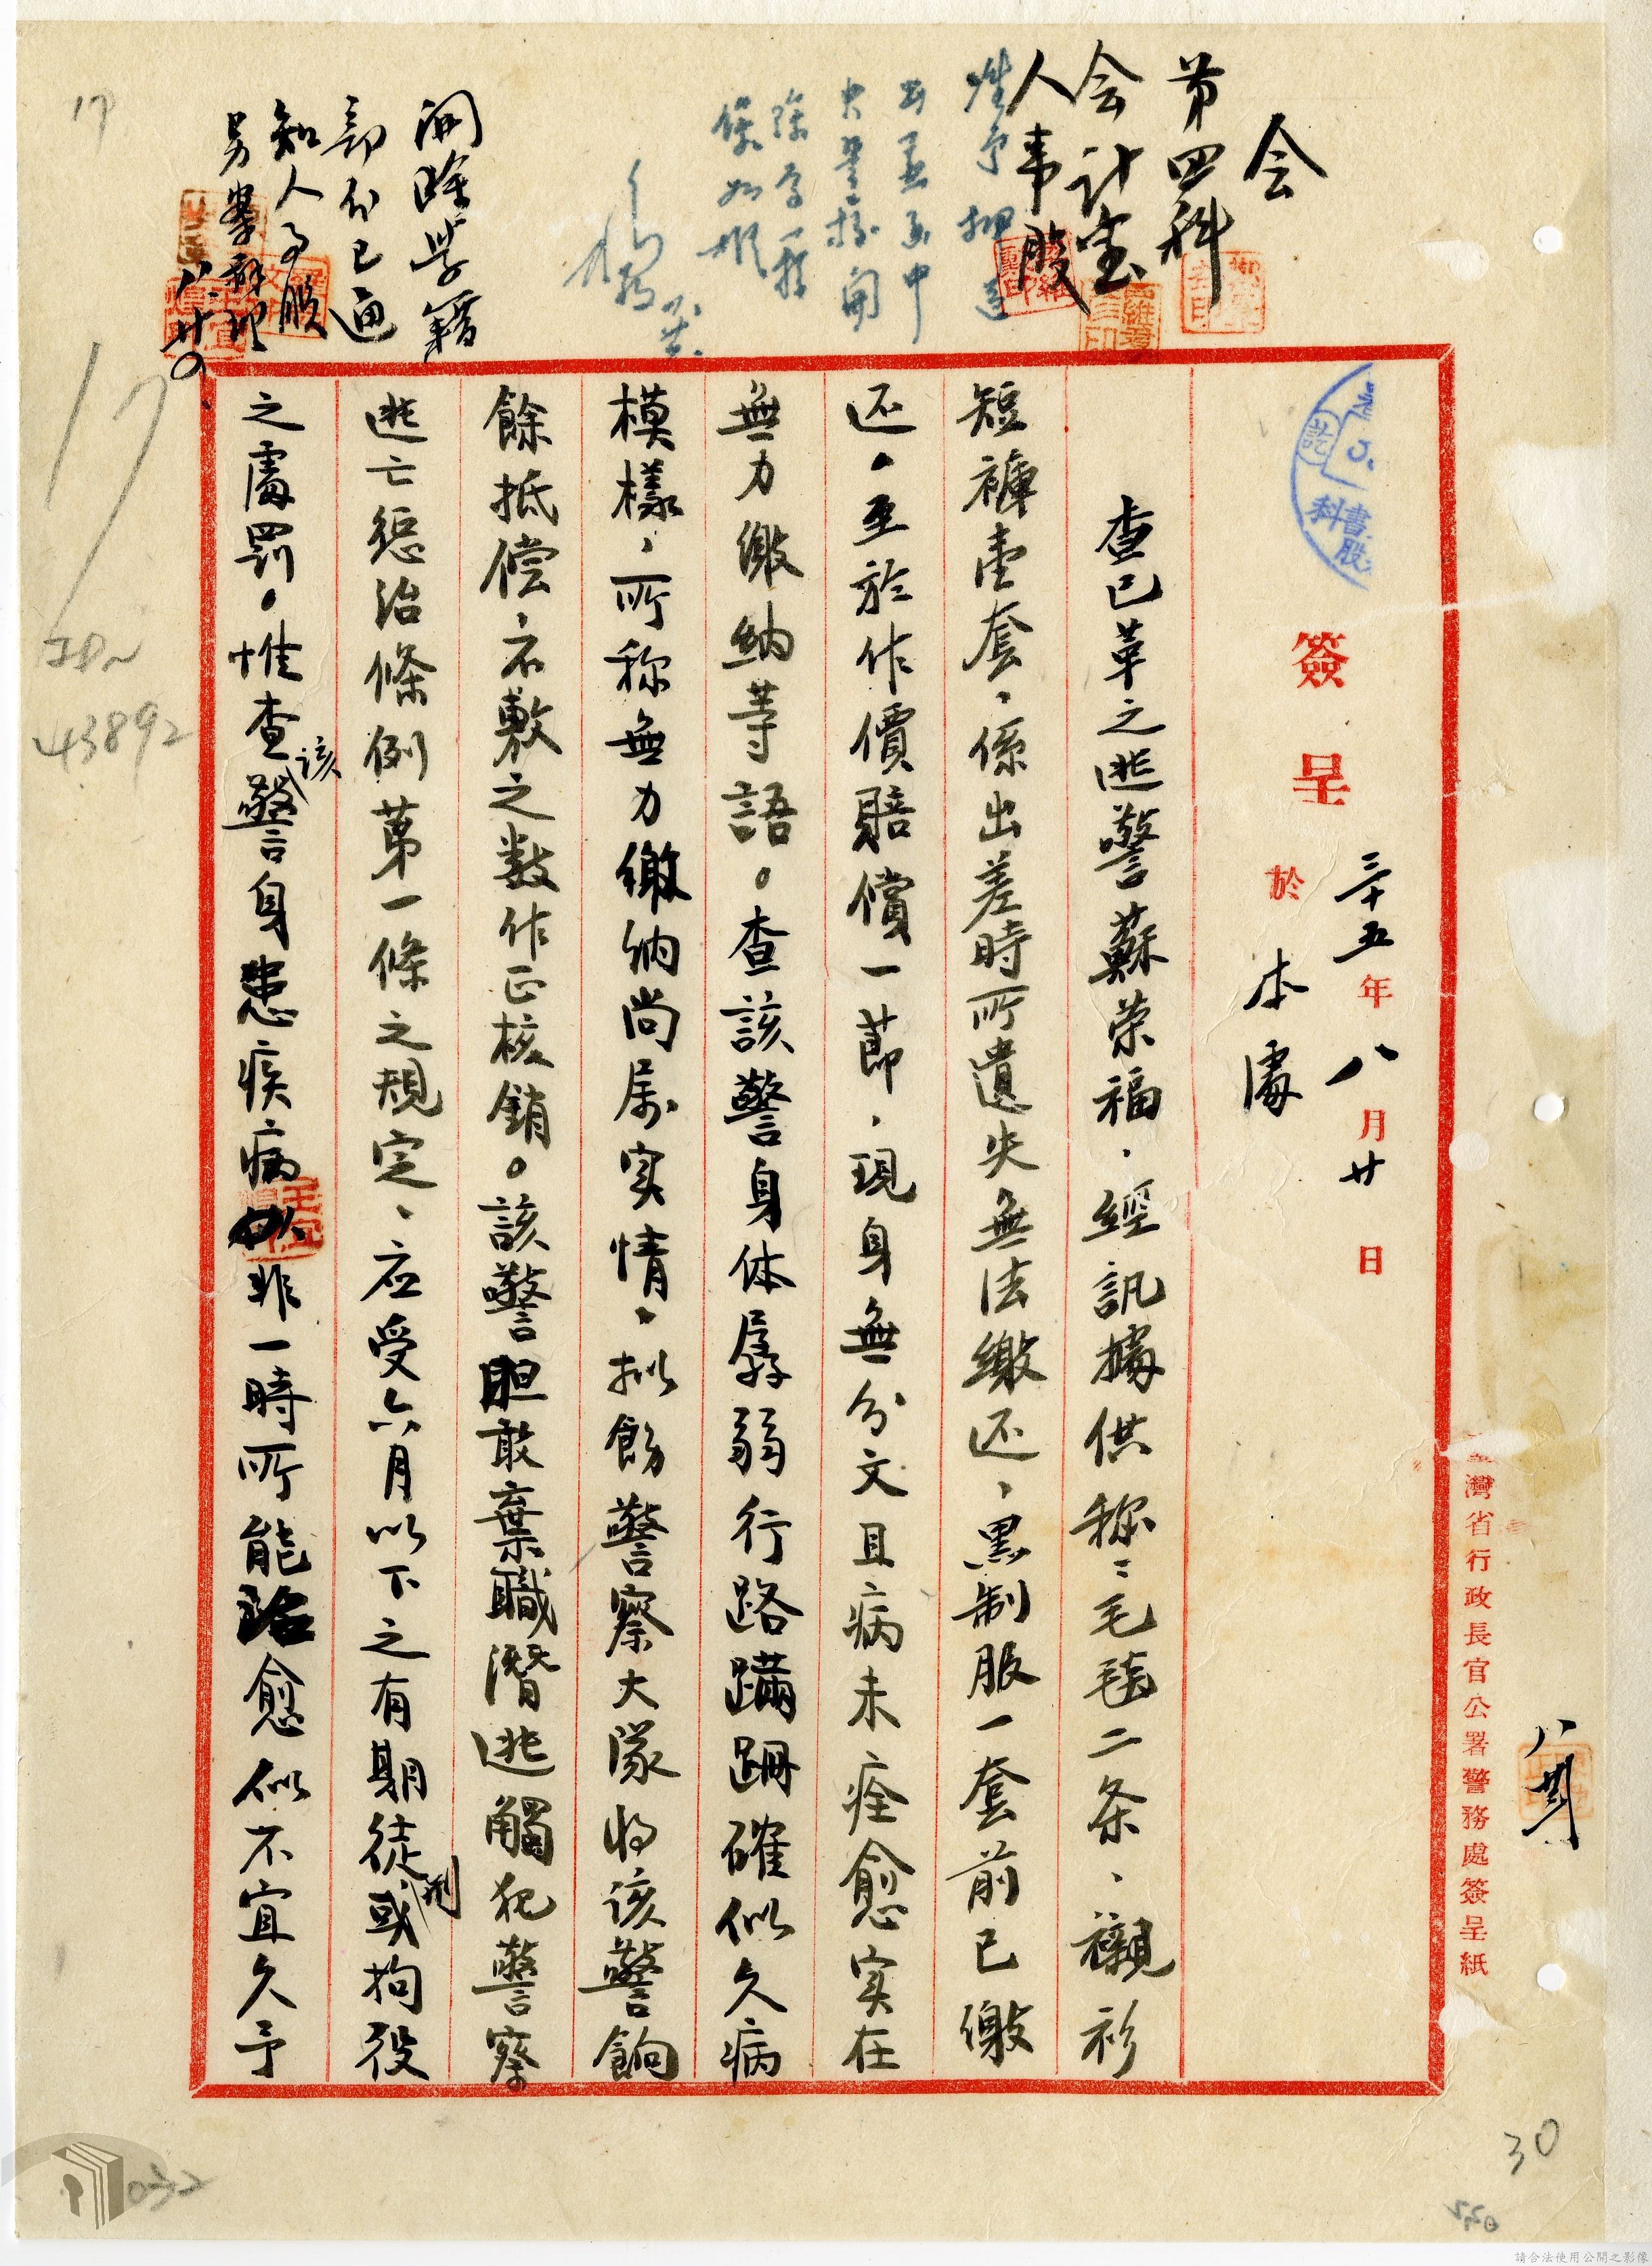 会
第四科
会計室
人事股
簽呈
三十五年八月廿日
於本處
查已革之逃警蘇荣福，經訊據供称：毛毯二条、襯衫
短褲壹套，係出差時所遺失無法繳还，黑制服一套前已繳
还。至於作價賠償一節，現身無分文且病未痊愈实在
無力繳納等語。查該警身体孱弱行路蹣跚確似久病
模樣，所称無力繳納尚属实情，拟飭警察大隊將该警餉
餘抵偿，不敷之数作正核銷。該警胆敢棄職潛逃觸犯警察
逃亡惩治條例第一條之規定，应受六月以下之有期徒刑或拘役
之處罰。惟查该警身患疾病似非一時所能治愈似不宜久予
開除学籍
部份已通
知人事股
另案辦理
八.廿.
准予
中
央警校開
除學籍
餘如擬
科書股
訖
臺灣省行政長官公署警務處簽呈紙
17
17
43892
032
30
請合法使用公開之影像